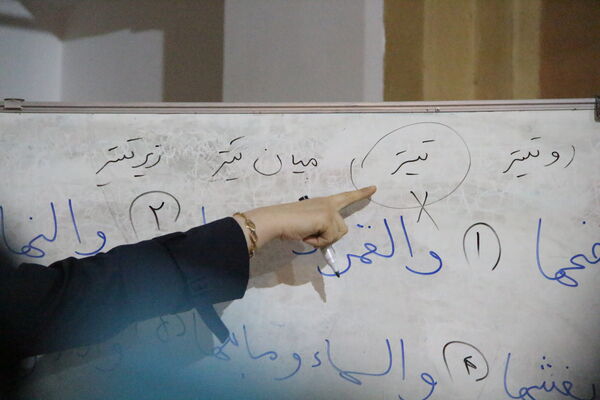 روتیتر تیتر میان تیتر زیر تیتر
ضحها ۱ والقمر ۲ والنها
یغشها ۴ والسماء وما بنها